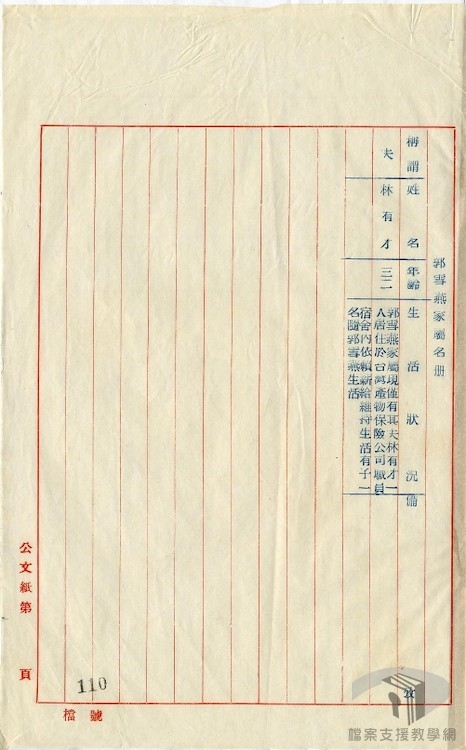 郭雪燕家屬名册
稱謂 姓名 年齡 生活狀況 備攷
夫 林有才 三二 郭雪燕家屬現僅有其夫林有才一
人居住於台灣產物保險公司職員
宿舍內依賴薪給維持生活有子一
名隨郭雪燕生活
公文紙第 頁
檔號
110
檔案支援教學網